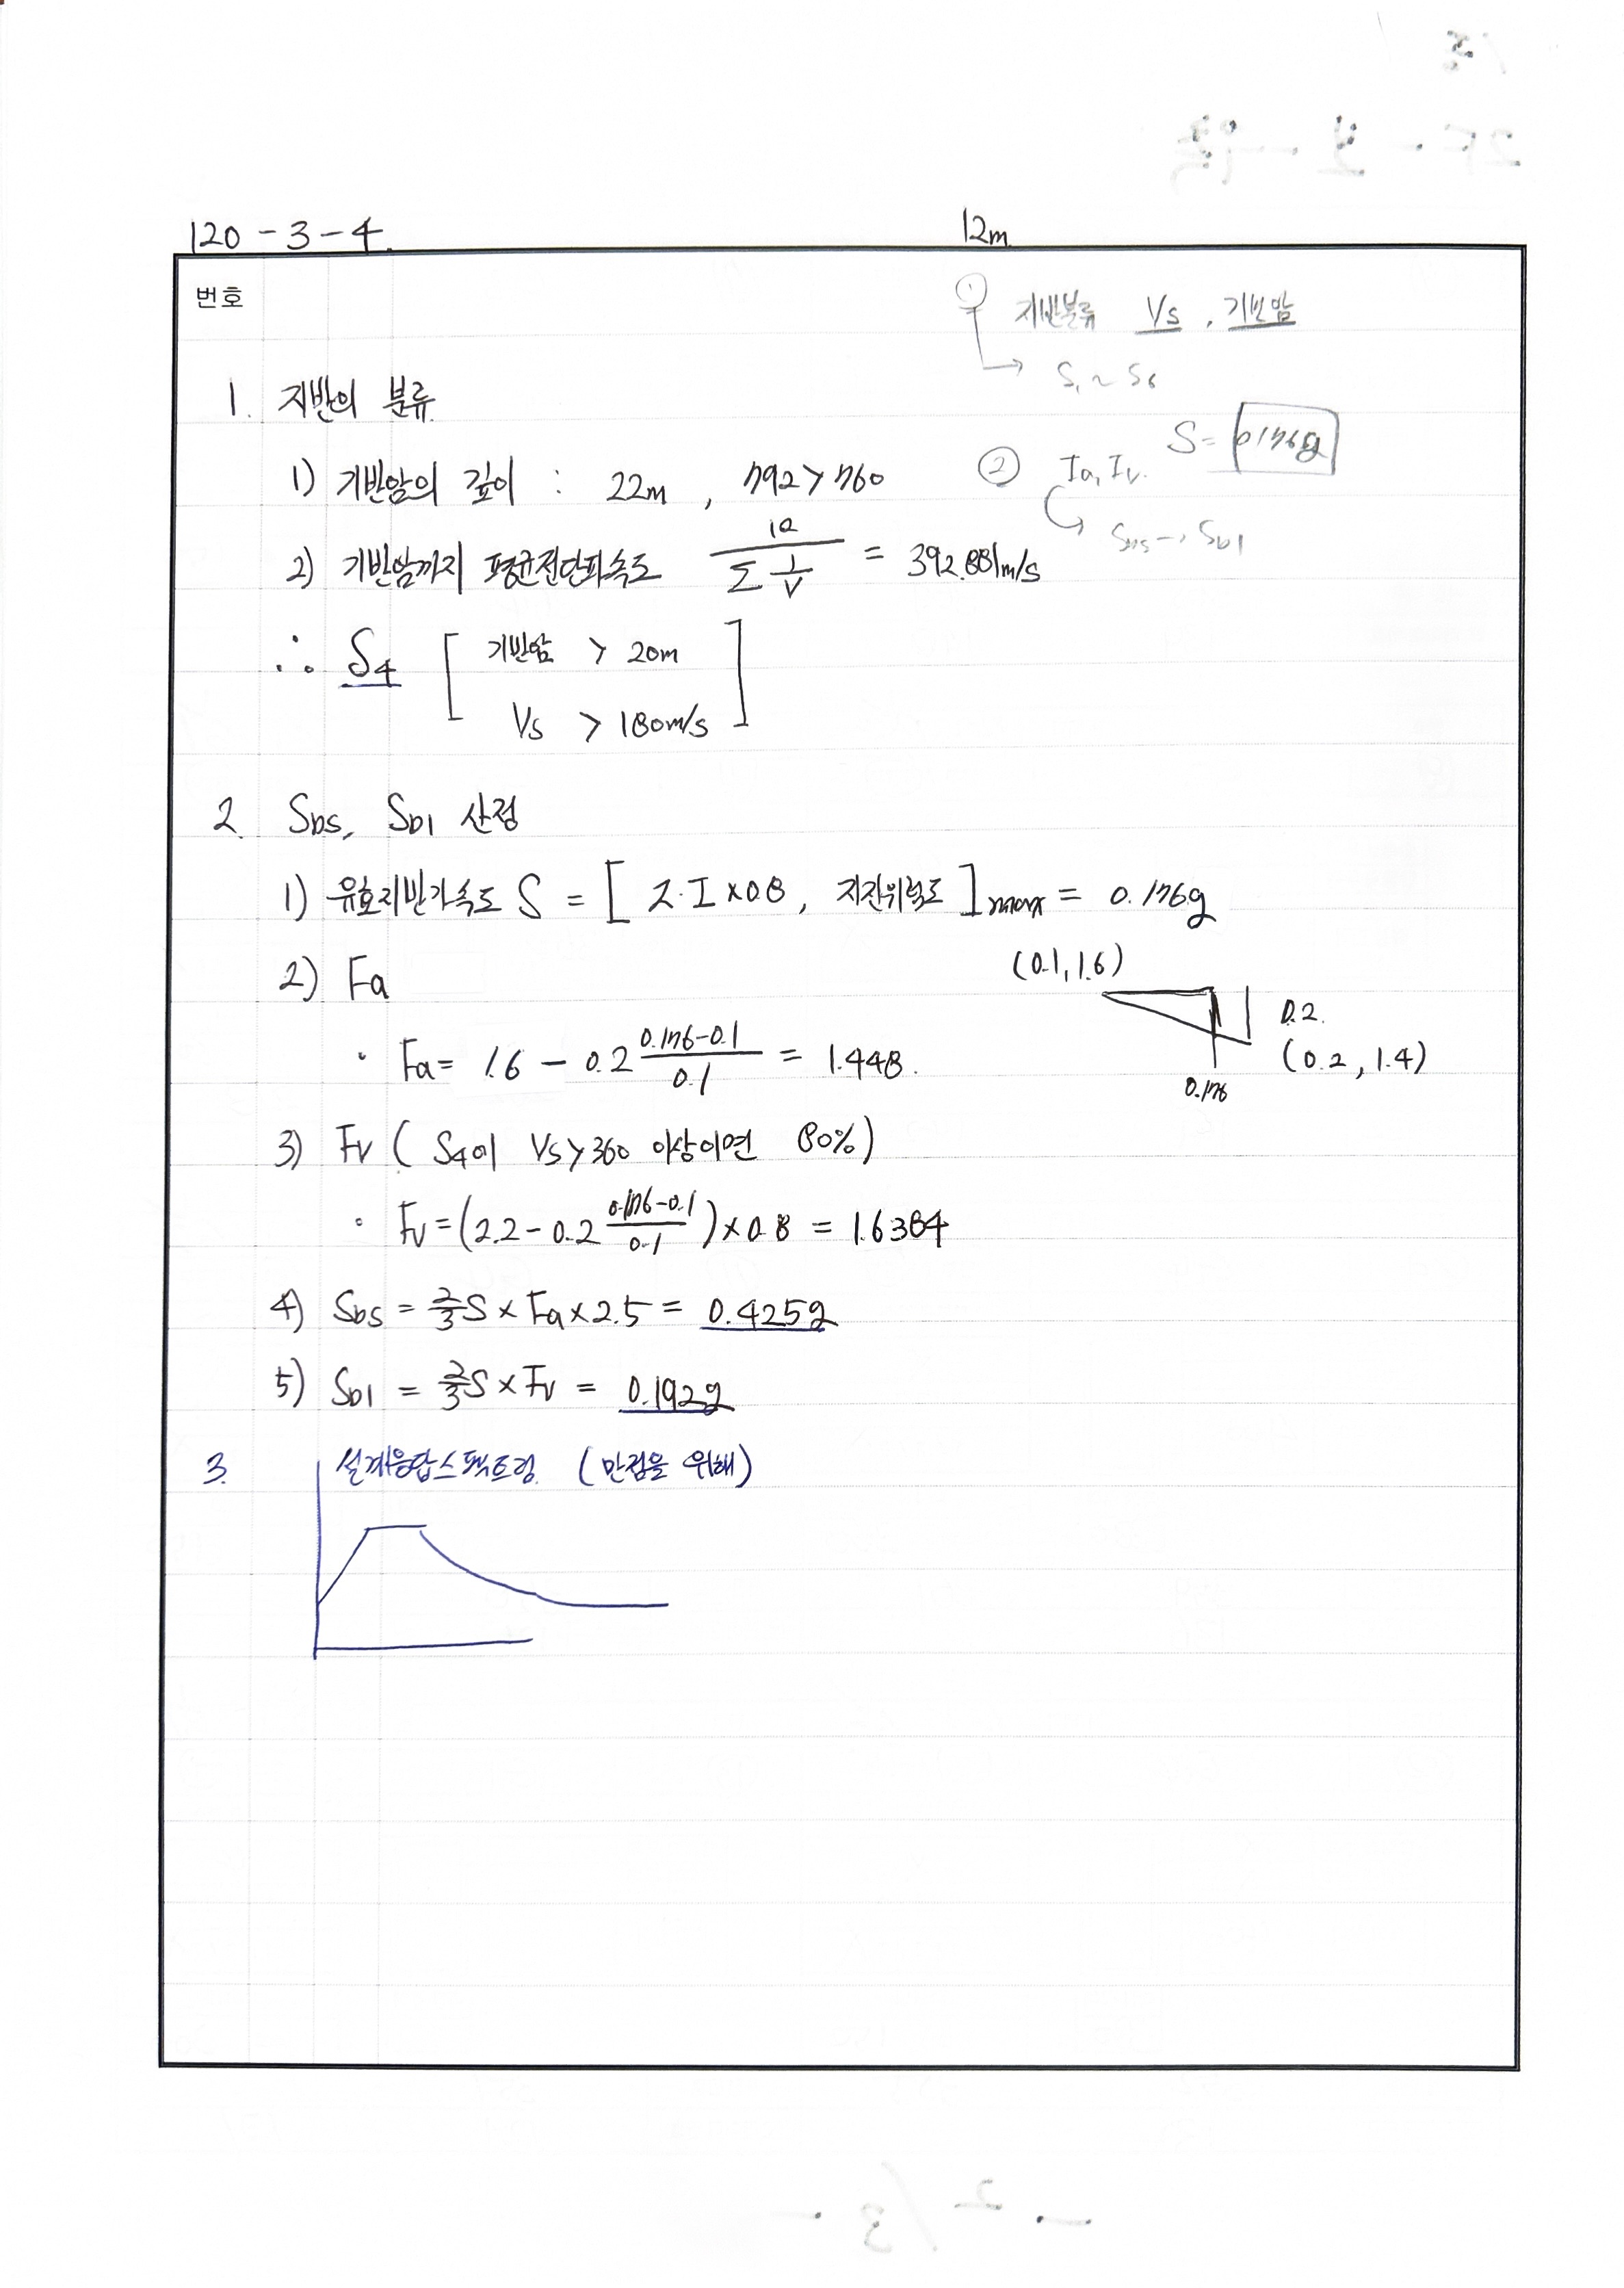 120 - 3 - 4.
12m
번호
① 지반분류 Vs, 기반암
→ S1 ~ S6
1. 지반의 분류
S = 0.176g
1) 기반암의 깊이 : 22m, 792 > 760
② Ia, Iv.
→ SDS → SD1
2) 기반암까지 평균전단파속도 / Σ 1/V = 392.881m/s
∴ S4 [ 기반암 > 20m
Vs > 180m/s ]
2. SDS, SD1 산정
1) 유효지반가속도 S = [ Z·I×0.8, 지진위험도 ]max = 0.176g
2) Fa
(0.1, 1.6)
0.2.
(0.2, 1.4)
0.176
• Fa = 1.6 - 0.2 (0.176-0.1)/0.1 = 1.448.
3) Fv ( S4이 Vs>360 이상이면 80%)
• Fv = (2.2 - 0.2 (0.176-0.1)/0.1) × 0.8 = 1.6384
4) SDS = 2/3 S × Fa × 2.5 = 0.425g
5) SD1 = 2/3 S × Fv = 0.192g
3. 설계응답스펙트럼. (만점을 위해)